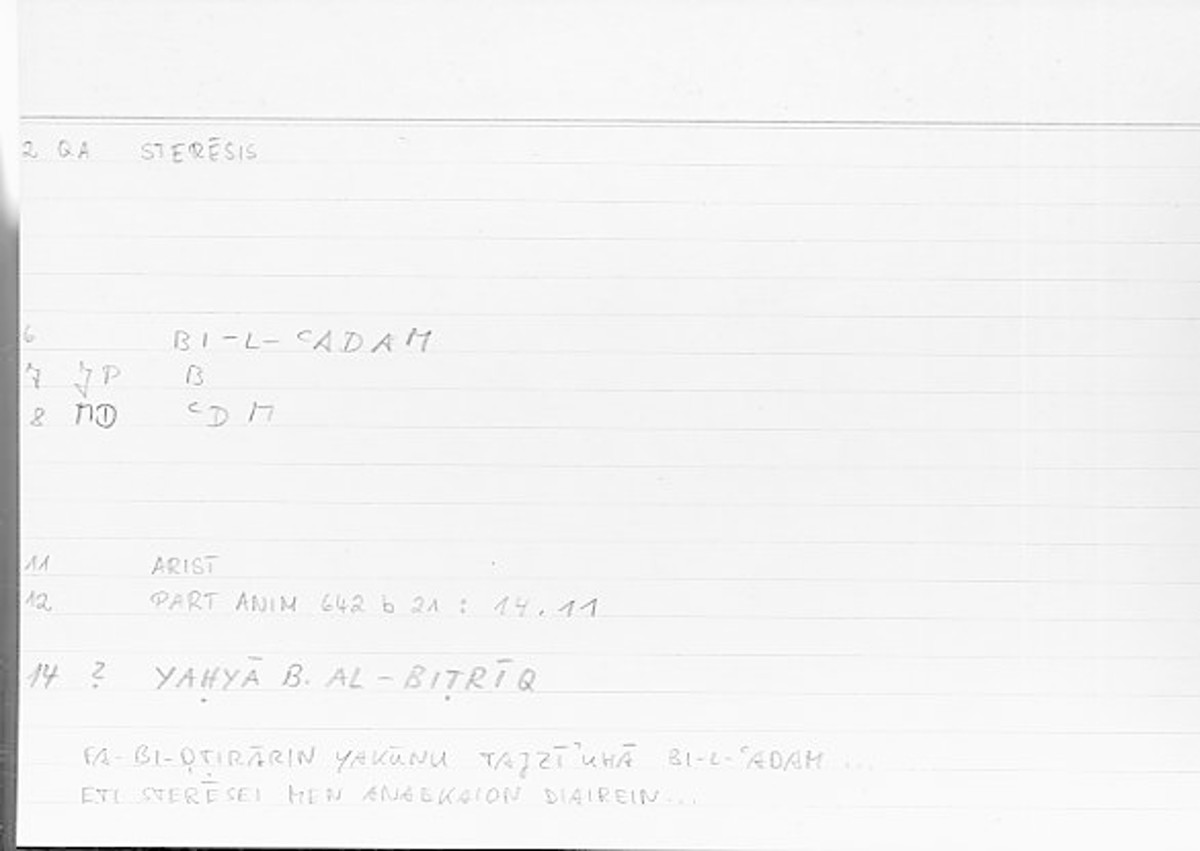 2 QA STERĒSIS
6 BI-L-ʿADAM
7 JP B
8 MD ʿDM
11 ARIST
12 PART ANIM 642 b 21 : 14.11
14 ? YAḤYĀ B. AL-BIṬRĪQ
FA-BI-ḌṬIRĀRIN YAKŪNU TAJZĪʾUHĀ BI-L-ʿADAM ...
ETI STERĒSEI MEN ANAGKAION DIAIREIN...